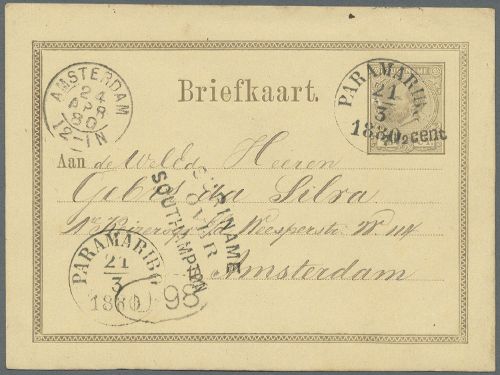 AMSTERDAM
24
APR
80
12-1N
Briefkaart.
PARAMARIBO
21
3
1880
½cent
Aan de Weled. Heeren
Gebrs da Silva
Weesperstr
Amsterdam
SURINAME
OVER
SOUTHAMPTON
PARAMARIBO
21
3
1880
98